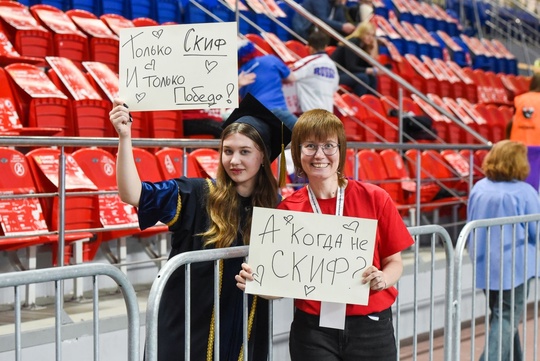 Только СКИФ
И только
Победа!
А когда не
СКИФ?